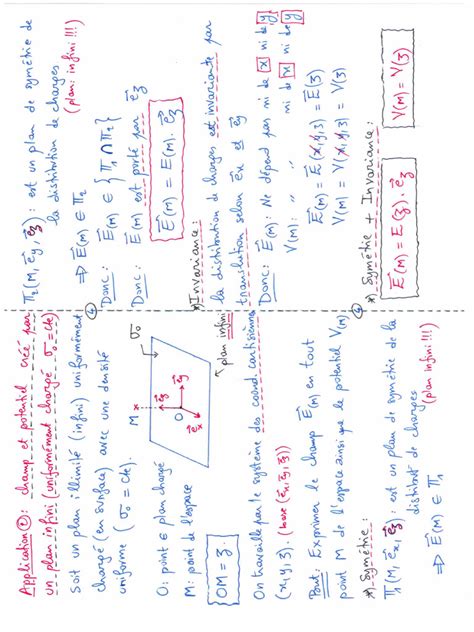 Application ①: champ et potentiel créé par
un plan infini (uniformément chargé σ₀ = cte)
Soit un plan illimité (infini) uniformément
chargé (en surface) avec une densité
uniforme (σ₀ = cte).
O: point ∈ plan chargé
M: point de l'espace
OM = z
M
O
e⃗z
e⃗y
e⃗x
σ₀
plan infini
On travaille par le système des coord cartésiennes
(x, y, z). (base (e⃗x, e⃗y, e⃗z))
But: Exprimer le champ E⃗(M) en tout
point M de l'espace ainsi que le potentiel V(M)
*) Symétrie:
Π₁(M, e⃗x, e⃗z): est un plan de symétrie de la
distribut° de charges
(plan infini!!!)
⇒ E⃗(M) ∈ Π₁
Π₂(M, e⃗y, e⃗z): est un plan de symétrie de
la distribution de charges
(plan: infini!!!)
⇒ E⃗(M) ∈ Π₂
Donc: E⃗(M) ∈ {Π₁ ∩ Π₂}
Donc: E⃗(M) est porté par e⃗z
E⃗(M) = E(M). e⃗z
*) Invariance:
la distribution de charges est invariante par
translation selon e⃗x et e⃗y
Donc: E⃗(M): Ne dépend pas ni de x ni de y
V(M): " " ni de x ni de y
E⃗(M) = E⃗(x, y, z) = E⃗(z)
V(M) = V(x, y, z) = V(z)
*) Symétrie + Invariance:
E⃗(M) = E(z). e⃗z
V(M) = V(z)